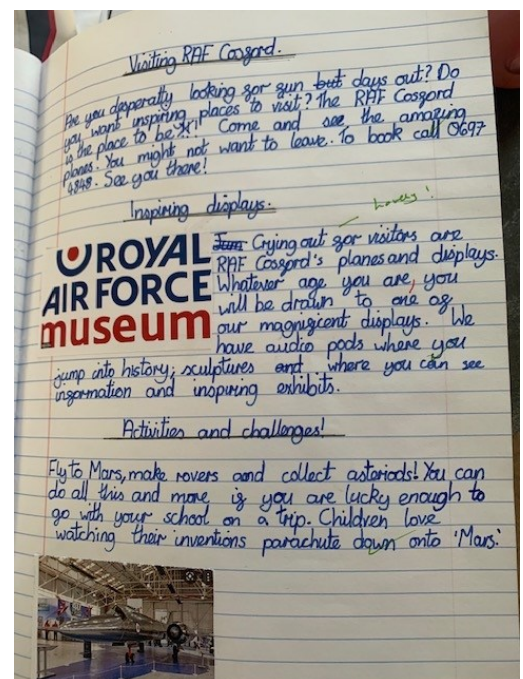 Visiting RAF Cosford.
Are you desperatly looking for fun but days out? Do
you want inspiring places to visit? The RAF Cosford
is the place to be! Come and see the amazing
planes. You might not want to leave. To book call 0697
4848. See you there!
Inspiring displays.
Lovely!
Crying out for visitors are
RAF Cosford's planes and displays.
Whatever age you are, you
will be drawn to one of
our magnificent displays. We
have audio pods where you
ROYAL
AIR FORCE
museum
jump into history; sculptures and where you can see
information and inspiring exhibits.
Activities and challenges!
Fly to Mars, make rovers and collect asteriods! You can
do all this and more if you are lucky enough to
go with your school on a trip. Children love
watching their inventions parachute down onto 'Mars'.